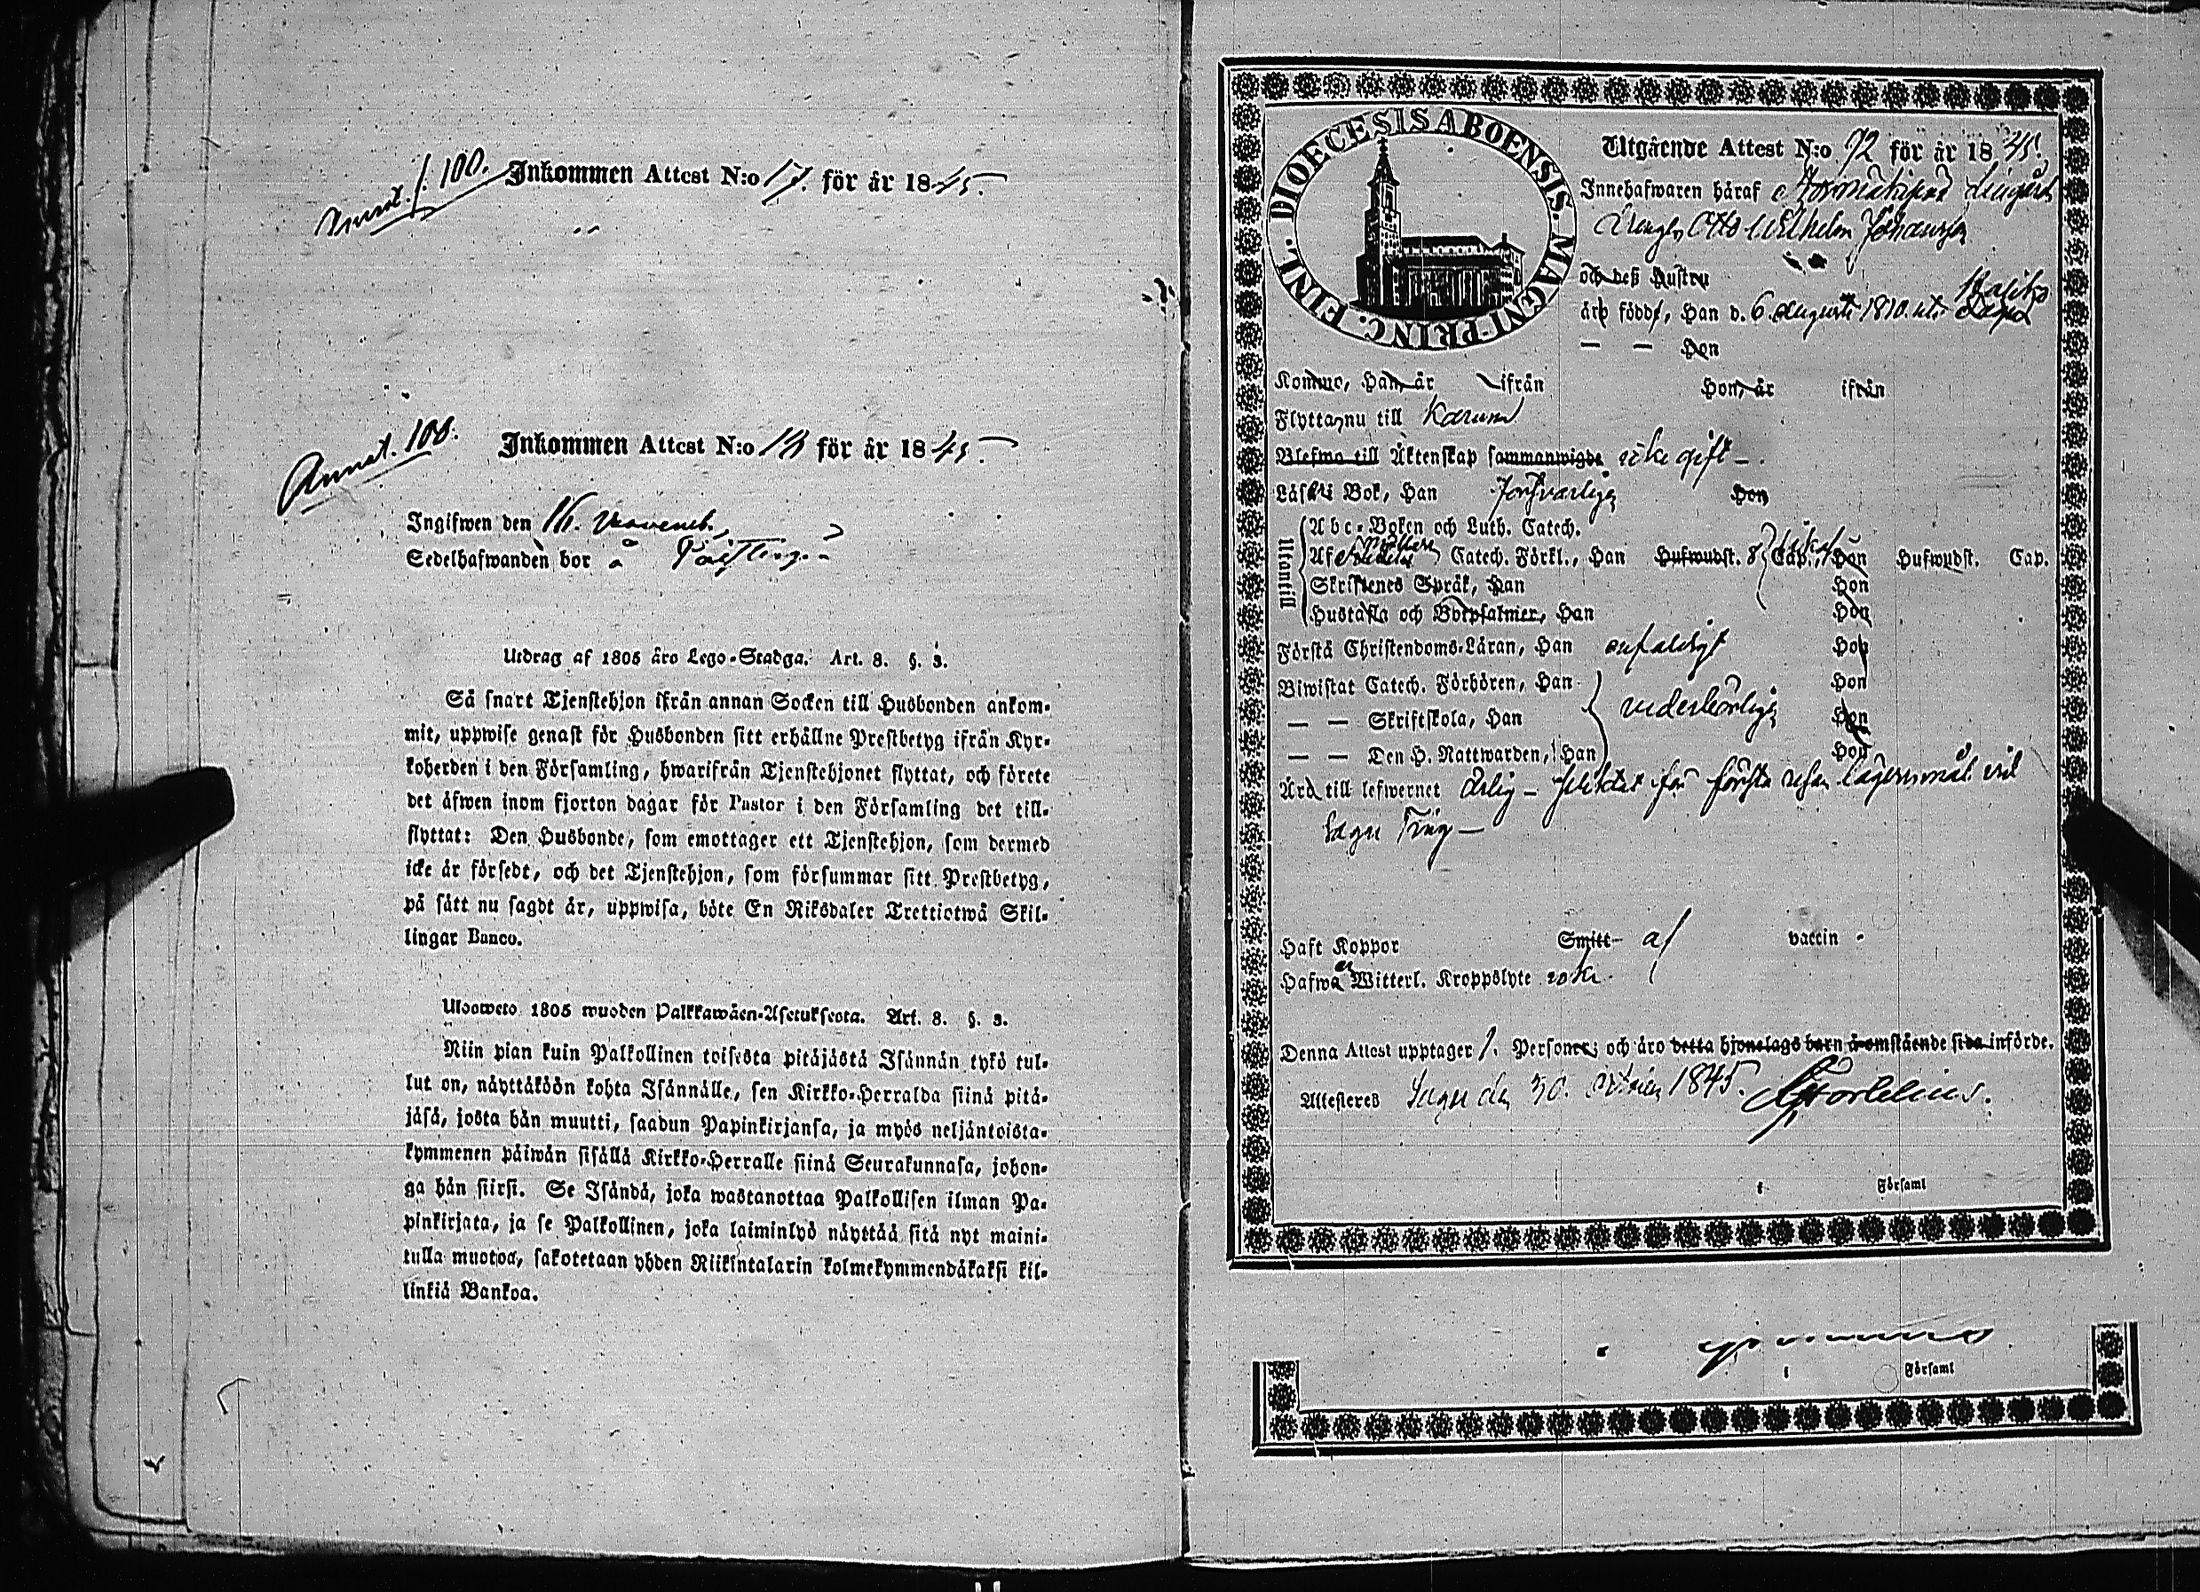 Annot. f. 100. Inkommen Attest N:o 17. för år 1845.
Annot. 100. Inkommen Attest N:o 18 för år 1845.
Ingifwen den 16. Novemb.
Sedelhafwanden bor å
Utdrag af 1805 års Lego-Stadga. Art. 8. §. 3.
Så snart Tjenstehjon ifrån annan Socken till Husbonden ankom-
mit, uppwise genast för Husbonden sitt erhållne Prestbetyg ifrån Kyr-
koherden i den Församling, hwarifrån Tjenstehjonet flyttat, och förete
det äfwen inom fjorton dagar för Pastor i den Församling det till-
flyttat: Den Husbonde, som emottager ett Tjenstehjon, som dermed
icke är försedt, och det Tjenstehjon, som försummar sitt Prestbetyg,
på sätt nu sagdt är, uppwisa, böte En Riksdaler Trettiotwå Skil-
lingar Banco.
Ulosweto 1805 wuoden Palkkawäen-Asetuksesta. Art. 8. §. 3.
Niin pian kuin Palkollinen toisesta pitäjästä Isännän tykö tul-
lut on, näyttäköön kohta Isännälle, sen Kirkko-Herralda siinä pitä-
jäsä, josta hän muutti, saadun Papinkirjansa, ja myös neljäntoista-
kymmenen päiwän sisällä Kirkko-Herralle siinä Seurakunnasa, johon-
ga hän siirsi. Se Isändä, joka wastanottaa Palkollisen ilman Pa-
pinkirjata, ja se Palkollinen, joka laiminlyö näyttää sitä nyt maini-
tulla muotoa, sakotetaan yhden Riikintalarin kolmekymmendäkaksi kil-
linkiä Bankoa.
DIOECESIS ABOENSIS. MAGNI PRINC. FINL.
Utgående Attest N:o 92 för år 1845.
Innehafwaren häraf
Drengen Otto Wilhelm Johansson
och deß Hustru
äro födde, Han d. 6. Augusti 1810. uti
— — Hon
Komne, Han, år ifrån Hon, år ifrån
Flytta, nu till Karuna
Blefwo till Äktenskap sammanwigde icke gift —.
Läsa i Bok, Han försvarligen Hon
Utantill
Abc-Boken och Luth. Catech.
Af Catech. Förkl., Han Hufwudst. 8 Cap., Hon Hufwudst. Cap.
Skriftenes Språk, Han Hon
Hustafla och Botpsalmer, Han Hon
Förstå Christendoms-Läran, Han enfaldigt Hon
Biwistat Catech. Förhören, Han Hon
— — Skriftskola, Han vederbörligen Hon
— — Den H. Nattwarden, Han Hon
Äro till lefwernet ärlig — pliktat för första resan lägersmål vid
Sagu Ting —
Haft Koppor Smitt- af vaccin
Hafwa Witterl. Kroppslyte icke.
Denna Attest upptager 1. Personer, och äro detta hjonelags barn å omstående sida införde.
Attesteres Sagu den 30. October 1845.
i Församl
i Församl